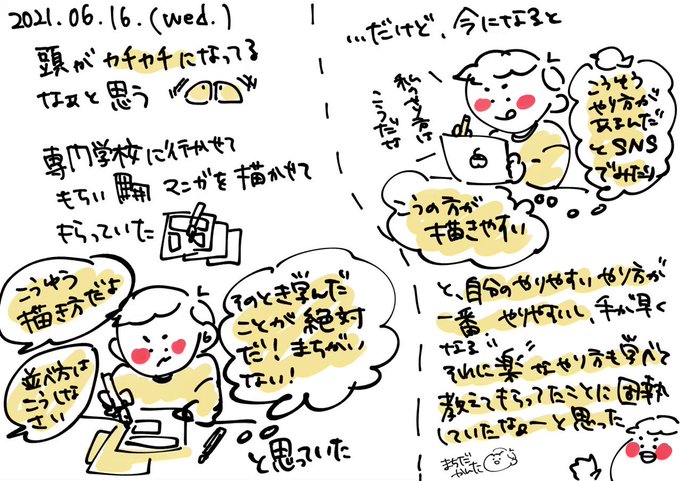 2021.06.16.(wed.)
頭がカチカチになってる
なぁと思う
専門学校に行かせて
もらい マンガを描かせて
もらっていた
こうゆう
描き方だよ
並べ方は
こうしな
さい
そのとき学んだ
ことが絶対
だ!まちがい
ない!
と思っていた
…だけど、今になると
私のやり方は
こうだな
こうゆう
やり方が
あるんだ
とSNS
でみたり
うの方が
描きやすい
と、自分のやりやすいやり方が
一番 やりやすいし、手が早く
なる
それに楽なやり方も学べて
教えてもらってたことに固執
していたなぁーと思った
まちだ
かんた